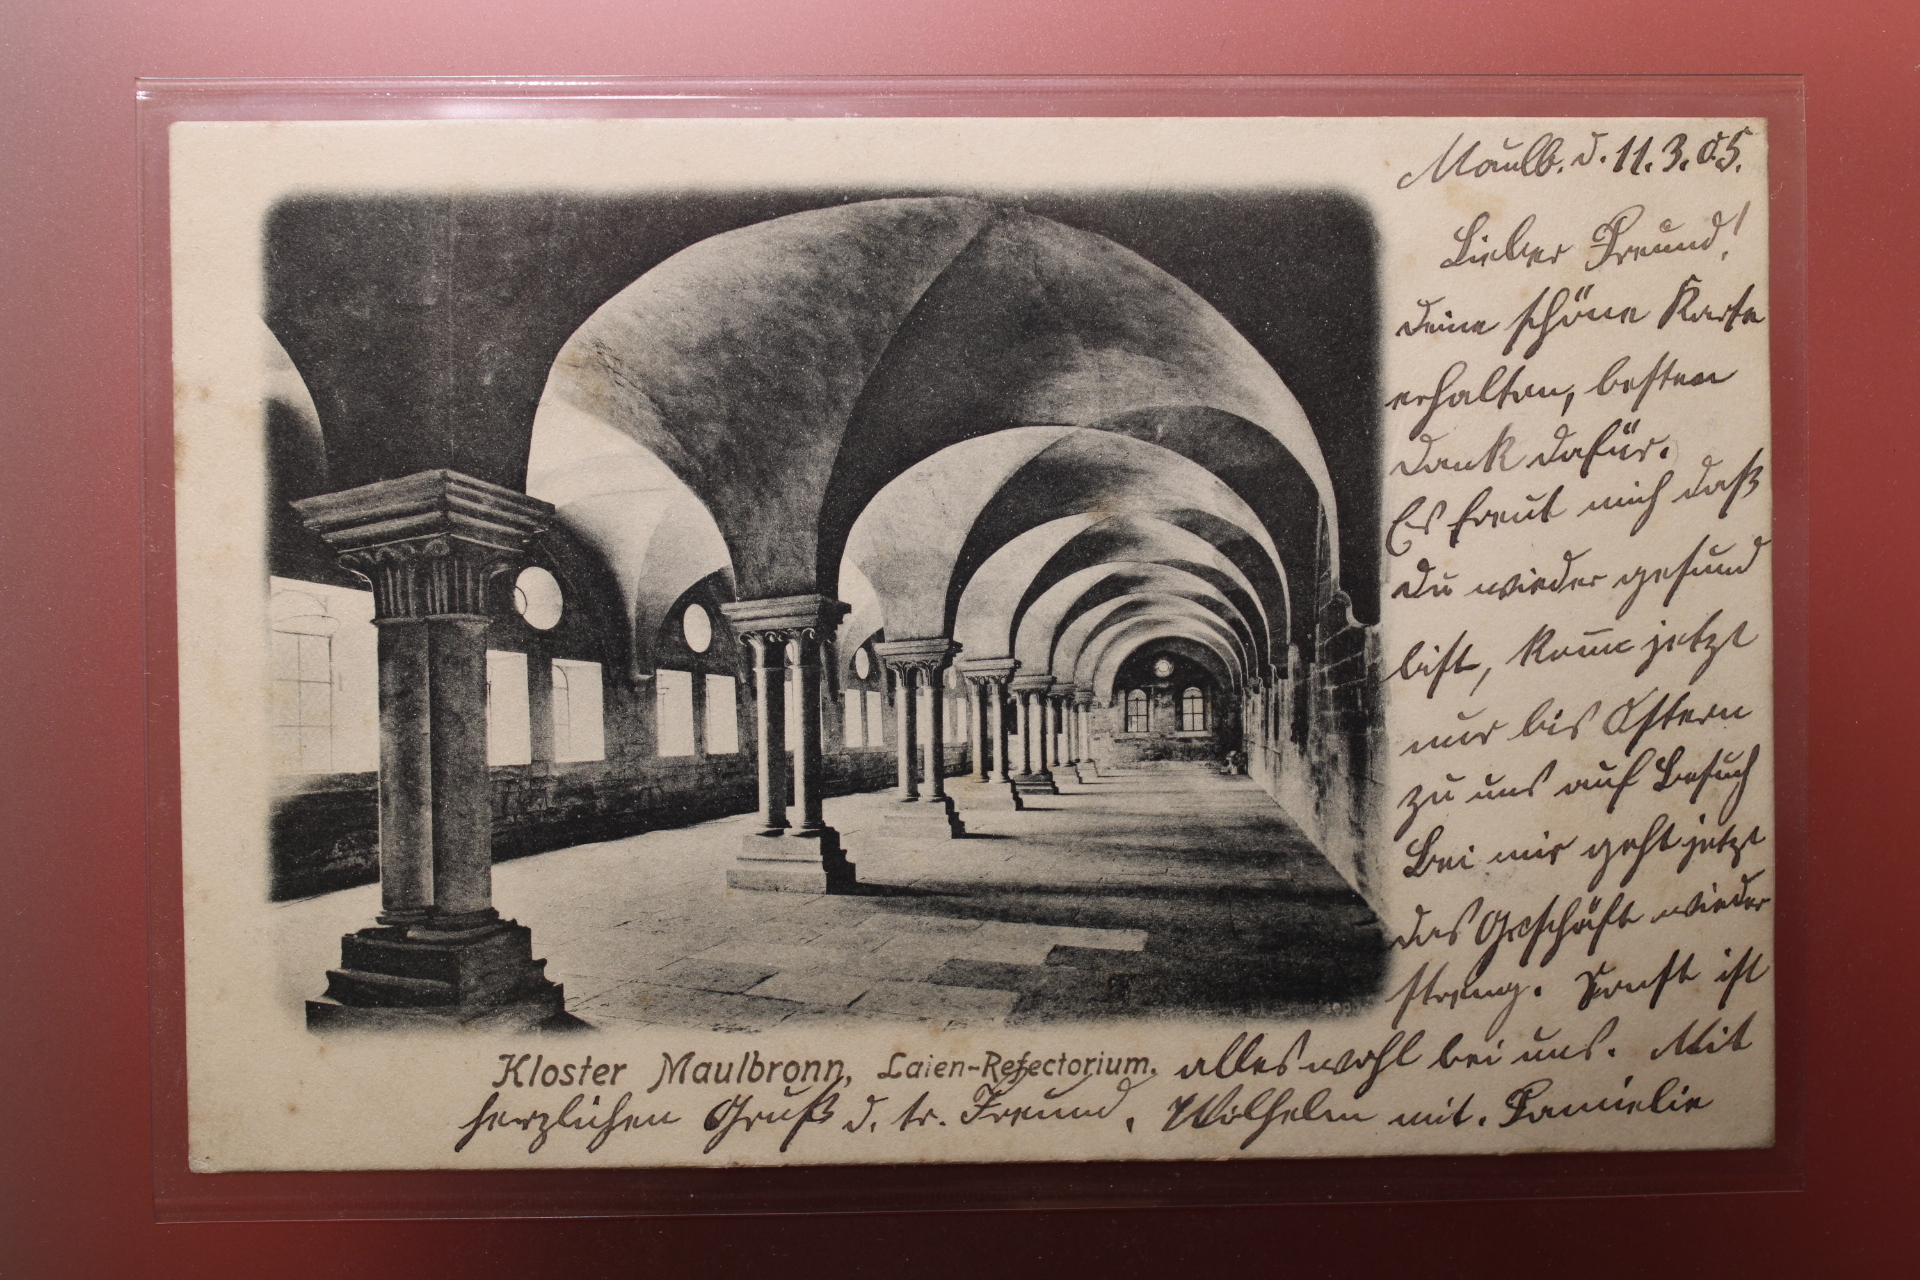 Maulb. d. 11.3.05.
Lieber Freund!
deine schöne Karte
erhalten, besten
Dank dafür.
Es freut mich daß
Du wieder gesund
bist, kom̅e jetzt
nur bis Ostern
zu uns auf Besuch
Bei mir geht jetzt
das Geschäft wieder
streng. Sonst ist
Kloster Maulbronn, Laien-Refectorium.
alles wohl bei uns. Mit
herzlichen Gruß d. tr. Freund, Wilhelm mit. Famielie